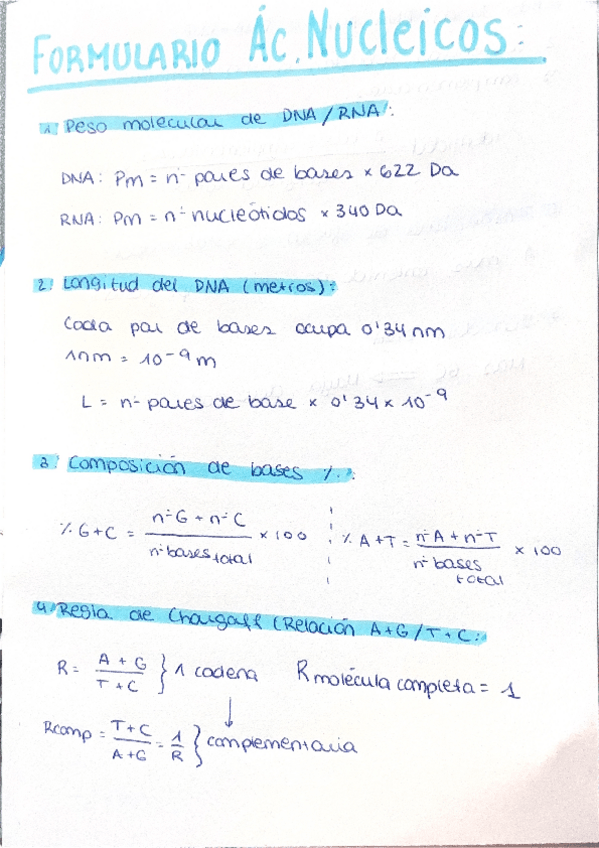 FORMULARIO ÁC. NUCLEICOS:
1. Peso molecular de DNA/RNA:
DNA: Pm = nº pares de bases × 622 Da
RNA: Pm = nº nucleótidos × 340 Da
2. Longitud del DNA (metros):
Cada par de bases ocupa 0'34 nm
1nm = 10⁻⁹ m
L = nº pares de base × 0'34 × 10⁻⁹
3. Composición de bases %:
% G+C = nº G + nº C / nº bases total × 100
% A+T = nº A + nº T / nº bases total × 100
4. Regla de Chargaff (Relación A+G/T+C:
R = A + G / T + C } 1 cadena R molécula completa = 1
↓
Rcomp = T+C / A+G = 1/R } complementaria